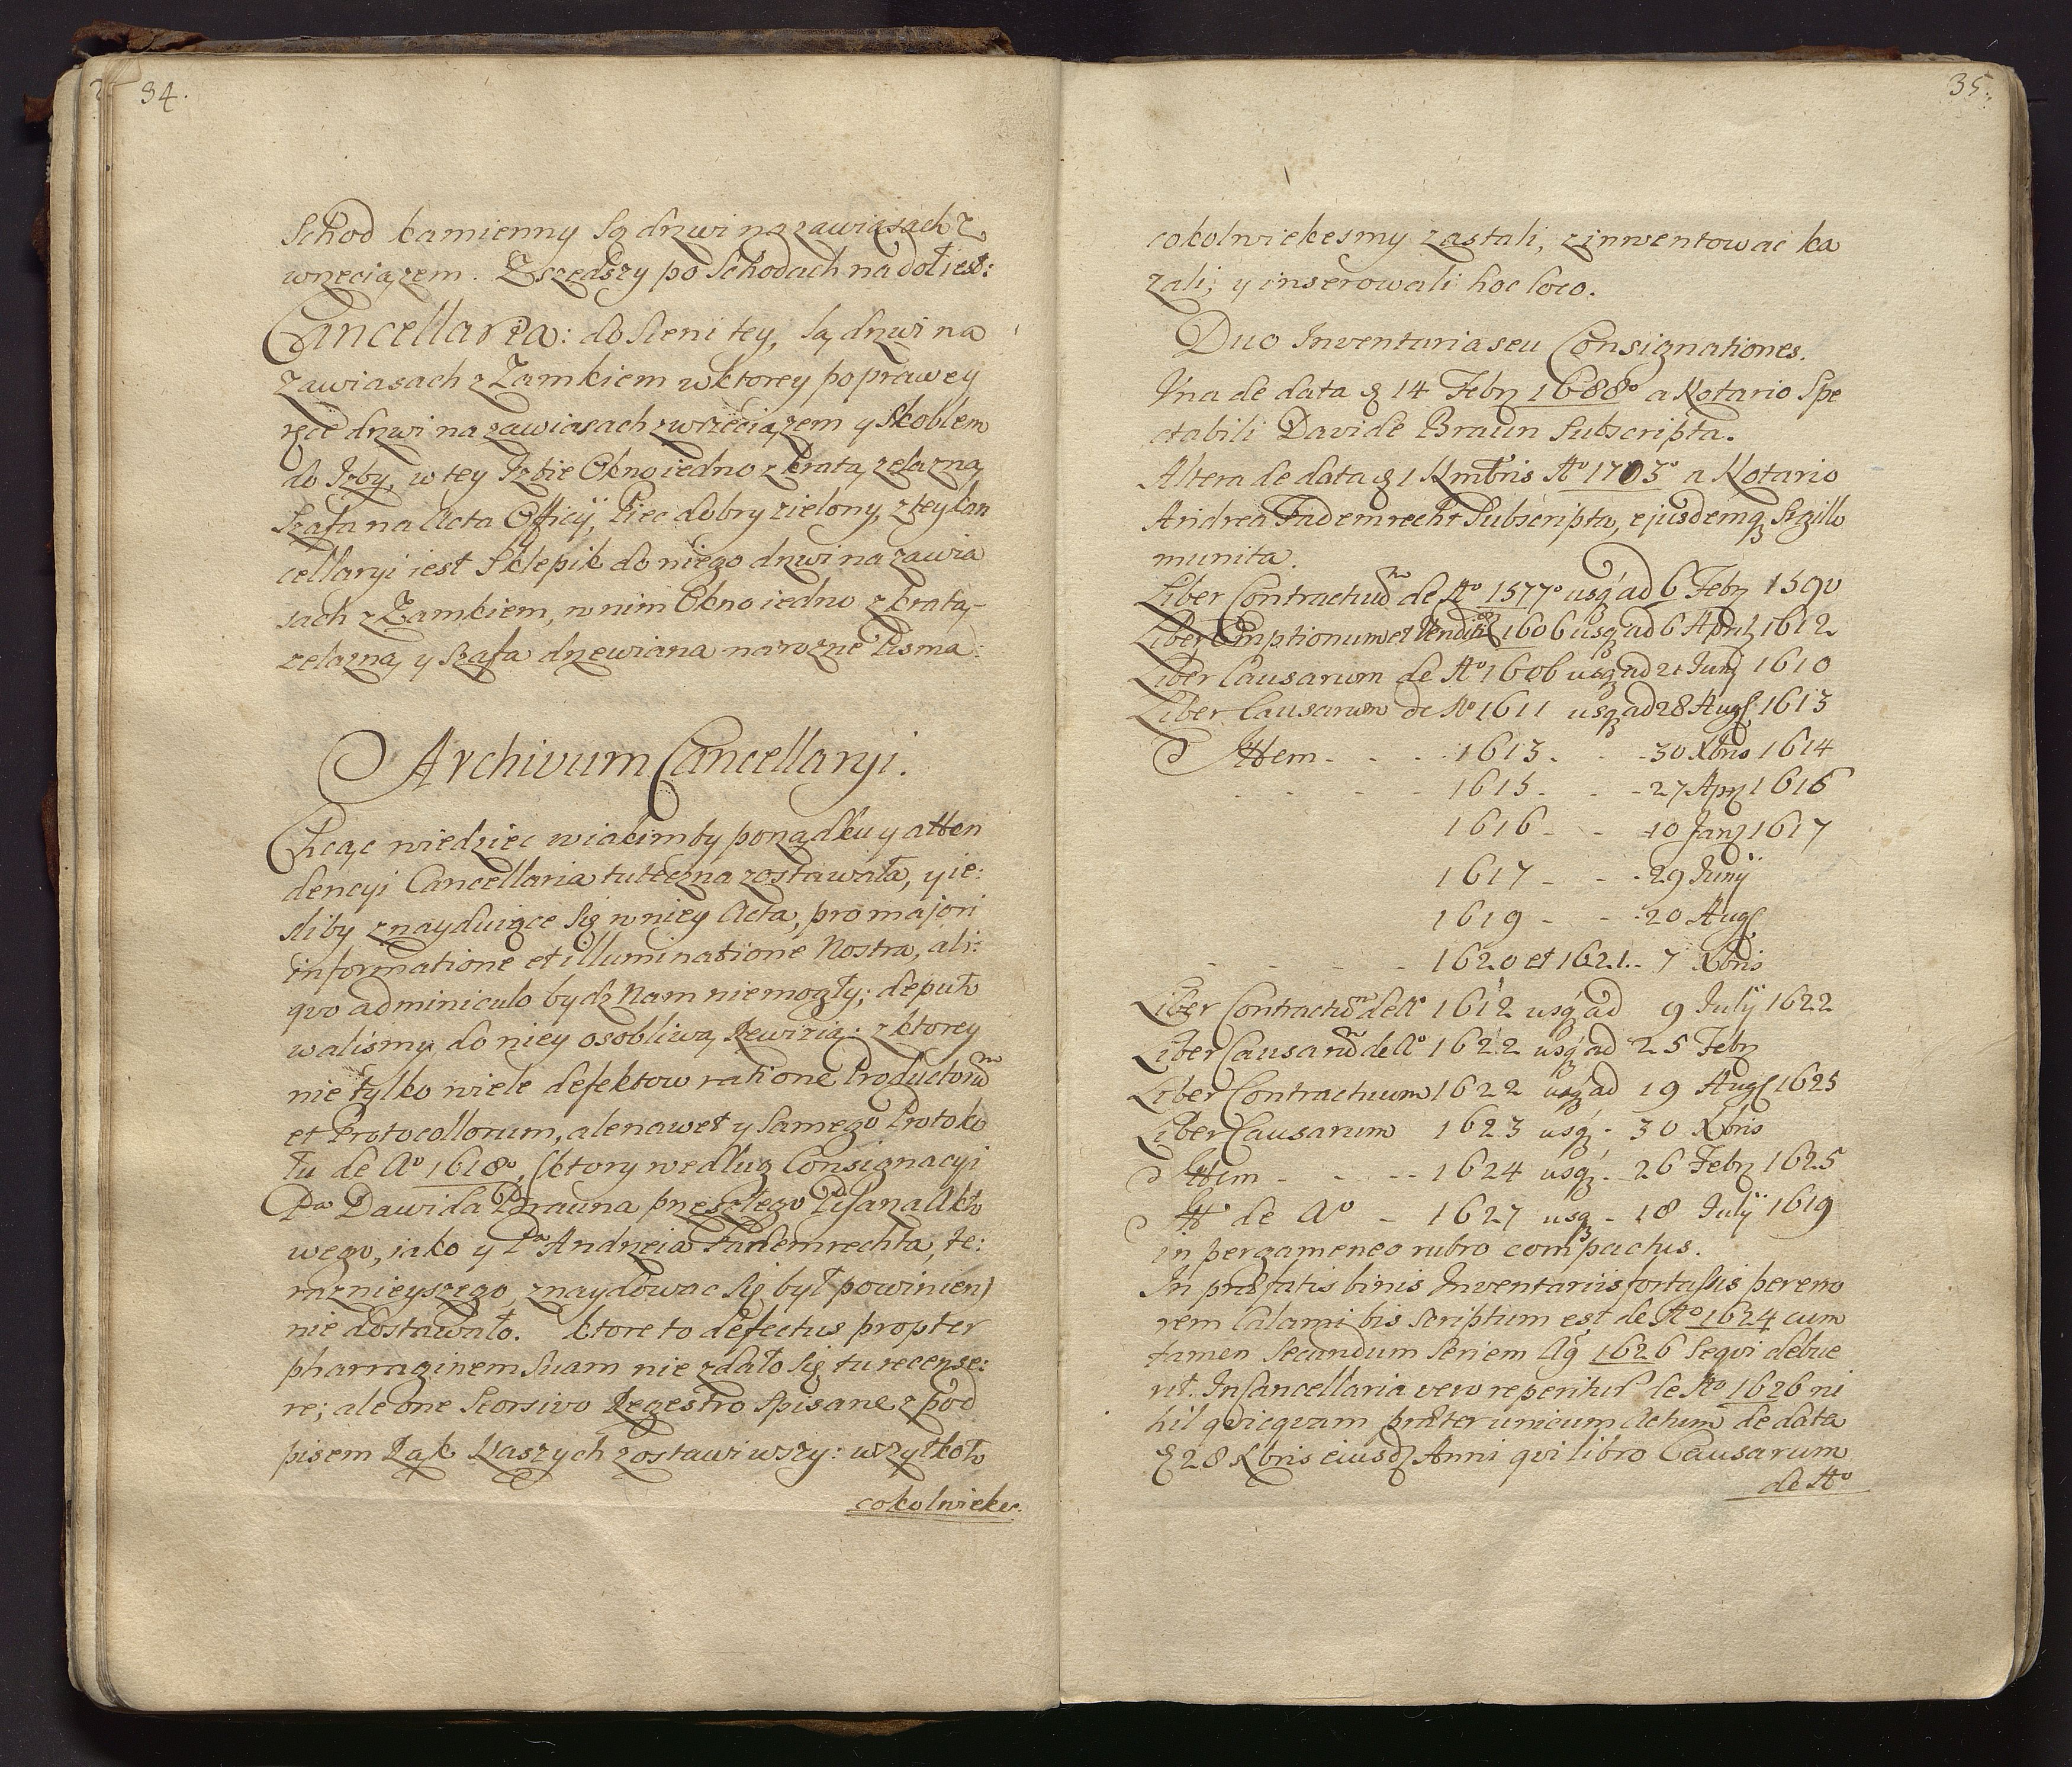 34.
Schod kamienny Są drzwi na zawiasach z
wrzeciązem. Zszedszy po Schodach na doł iest:
Cancellaria: do Sieni tey, Są drzwi na
zawiasach z Zamkiem w ktorey po prawey
ręce drzwi na zawiasach z wrzeciązem y Skoblem
do Izby, w tey Izbie Okno iedno z kratą zelazną,
Szafa na Acta Officij, Piec dobry zielony, z tey Can
cellaryi iest Sklepik do niego drzwi na zawia
sach z Zamkiem, w nim Okno iedno z kratą,-
zelazną y Szafa drzewiana na rozne Pisma:
Archivum Cancellaryi.
Chcąc wiedziec w iakimby porządku y atten
dencyi Cancellaria tuteczna zostawała, y ie:
sliby znayduiące Się w niey Acta, pro majori
informatione et illuminatione Nostra, ali:
quo adminiculo bydz Nam niemogły; deputo
walismy do niey osobliwą Rewizią: z ktorey
nie tylko wiele defektow ratione Productorũ
et Protocollorum, ale nawet y Samego Protoko
łu de Aº 1618º, (ktory według Consignacyi
Pa Dawida Brauna przeszłego Pisarza Akto
wego, iako y Pa Andrzeia Fademrechta, te:
raznieyszego, znaydowac Się był powinien)
nie dostawało. ktore to defectus propter
pharraginem Suam nie zdało Się tu recense:
re; ale one Seorsivo Regestro Spisane z pod
pisem Rąk Naszych zostawiwszy: wszytko to
cokolwieke:
35.
cokolwiekesmy zastali, zinwentowac ka
zali; y inserowali hoc loco.
Duo Inventaria seu Consignationes.
Una de data 14 Febr 1688º a Notario Spe
ctabili Davide Braun Subscripta.
Altera de data 1 Xmbris Aº 1703º a Notario
Andrea Fademrecht Subscripta, ejusdemq Sigillo
munita.
Liber Contractuũ de Aº 1577º usq ad 6 Febr 1590
Liber Emptionum et Vendit 1606 usq ad 6 April 1612
Liber Causarum de Aº 1606 usq ad 21 Junj 1610
Liber Causarum de Aº 1611 usq ad 28 Aug 1613
Item - - - 1613. - - 30 Xbris 1614
- - - - 1615. - - 27 Apr 1616
1616 - - 10 Janz 1617
1617 - - 29 Junij
1619 - - 20 Aug
- - - - 1620 et 1621. - 7 Xbris
Liber Contractuũ de Aº 1612 usq ad 9 Julij 1622
Liber Causarũ de Aº 1622 usq ad 25 Febr
Liber Contractuum 1622 usq ad 19 Aug 1625
Liber Causarum 1623 usq - 30 Xbris
Item - - - - 1624 usq - 26 Febr 1625
It de Aº - 1627 usq - 18 Julij 1619
in pergameneo rubro compactus.
In præfatis binis Inventariis fortassis per erro
rem Calami bis Scriptum est de Aº 1624 cum
tamen Secundum Seriem Aº 1626 Seqvi debue
rit. In Cancellaria vero reperitur de Aº 1626 ni
hil qvicqvam præter unicum Actum de data
28 Xbris eiusd Anni qvi libro Causarum
de Aº